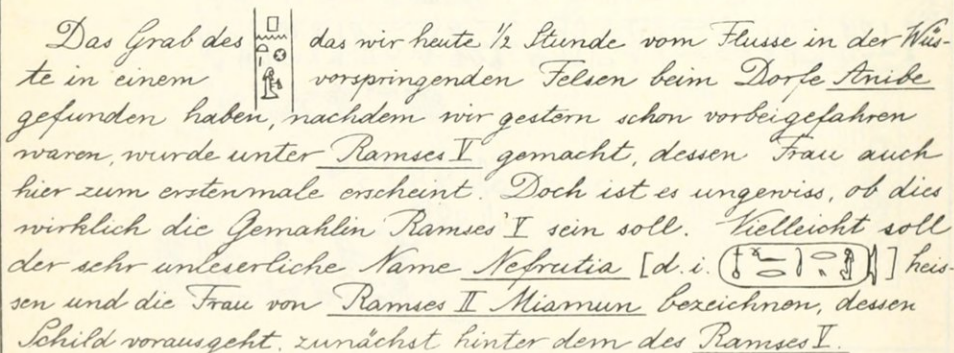 Das Grab des das wir heute ½ Stunde vom Flusse in der Wüs-
te in einem vorspringenden Felsen beim Dorfe Anibe
gefunden haben, nachdem wir gestern schon vorbeigefahren
waren, wurde unter Ramses V gemacht, dessen Frau auch
hier zum erstenmale erscheint. Doch ist es ungewiss, ob dies
wirklich die Gemahlin Ramses' V sein soll. Vielleicht soll
der sehr unleserliche Name Nefrutia [d. i. ] heis-
sen und die Frau von Ramses II Miamun bezeichnen, dessen
Schild vorausgeht, zunächst hinter dem des Ramses V.